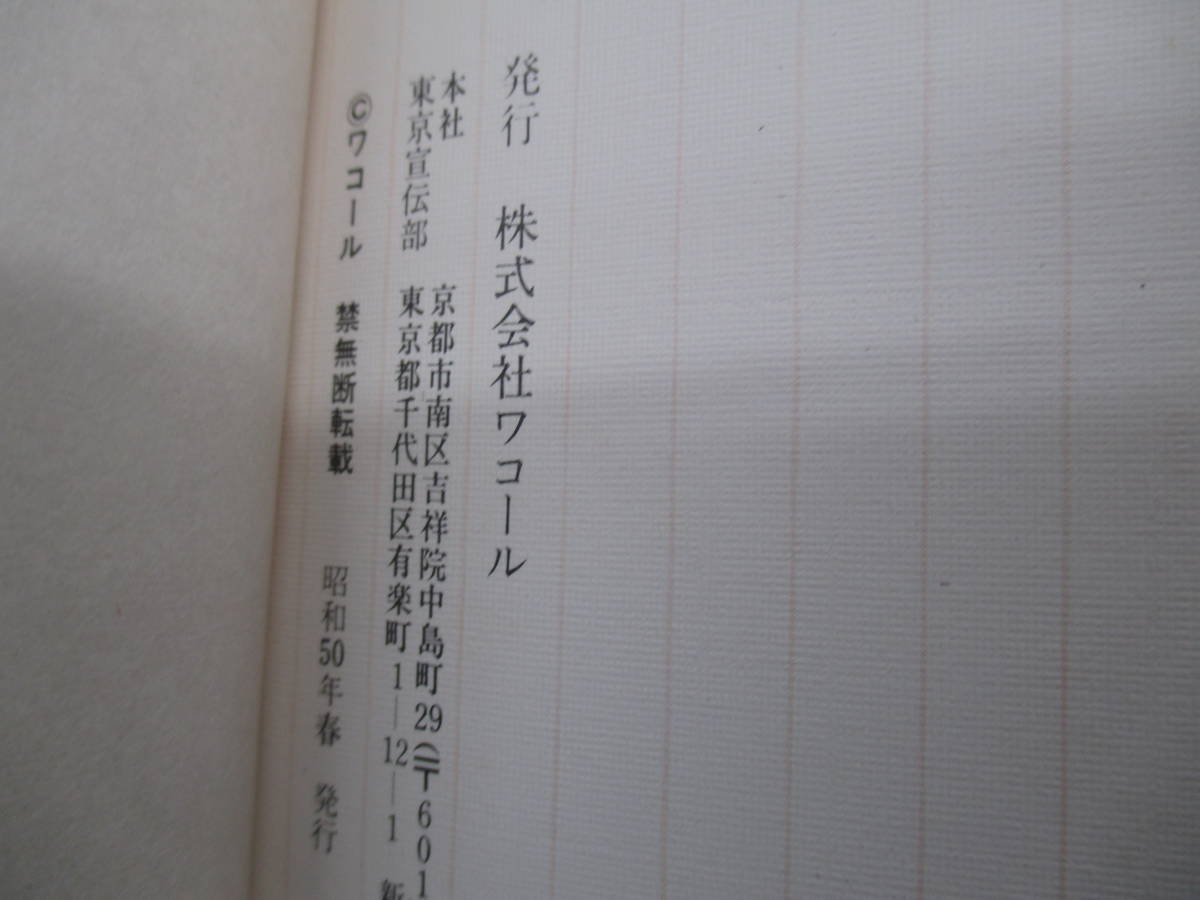 発行 株式会社ワコール
本社 京都市南区吉祥院中島町29(〒601
東京宣伝部 東京都千代田区有楽町1―12―1 新
©ワコール 禁無断転載 昭和50年春 発行